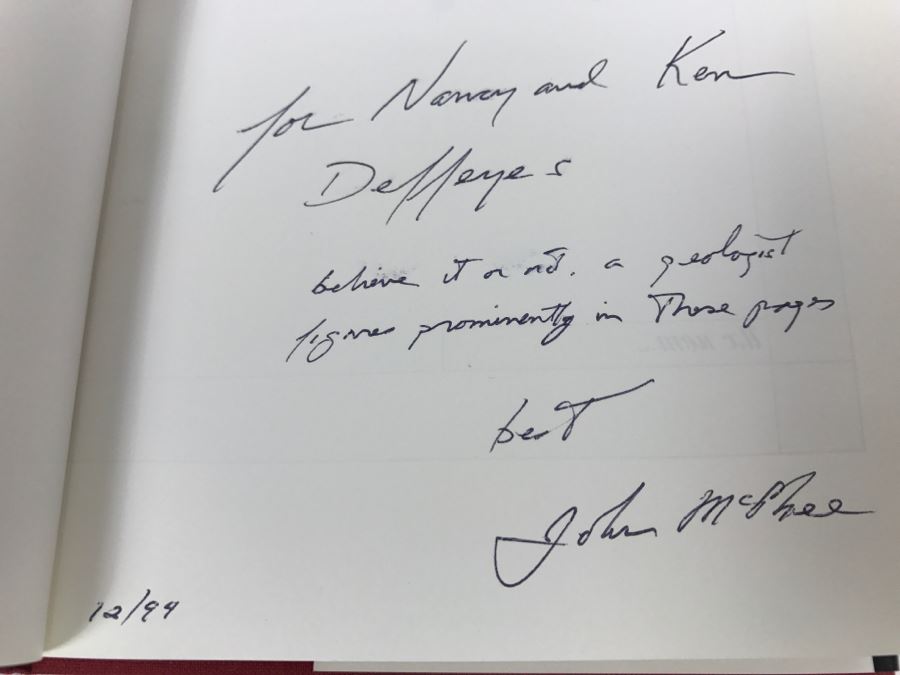 for Nancy and Ken
Deffeyes
believe it or not, a geologist
figures prominently in these pages
best
John McPhee
12/99